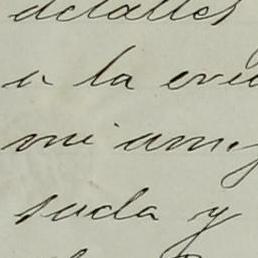 detalles
a la evi
mi am
suda y